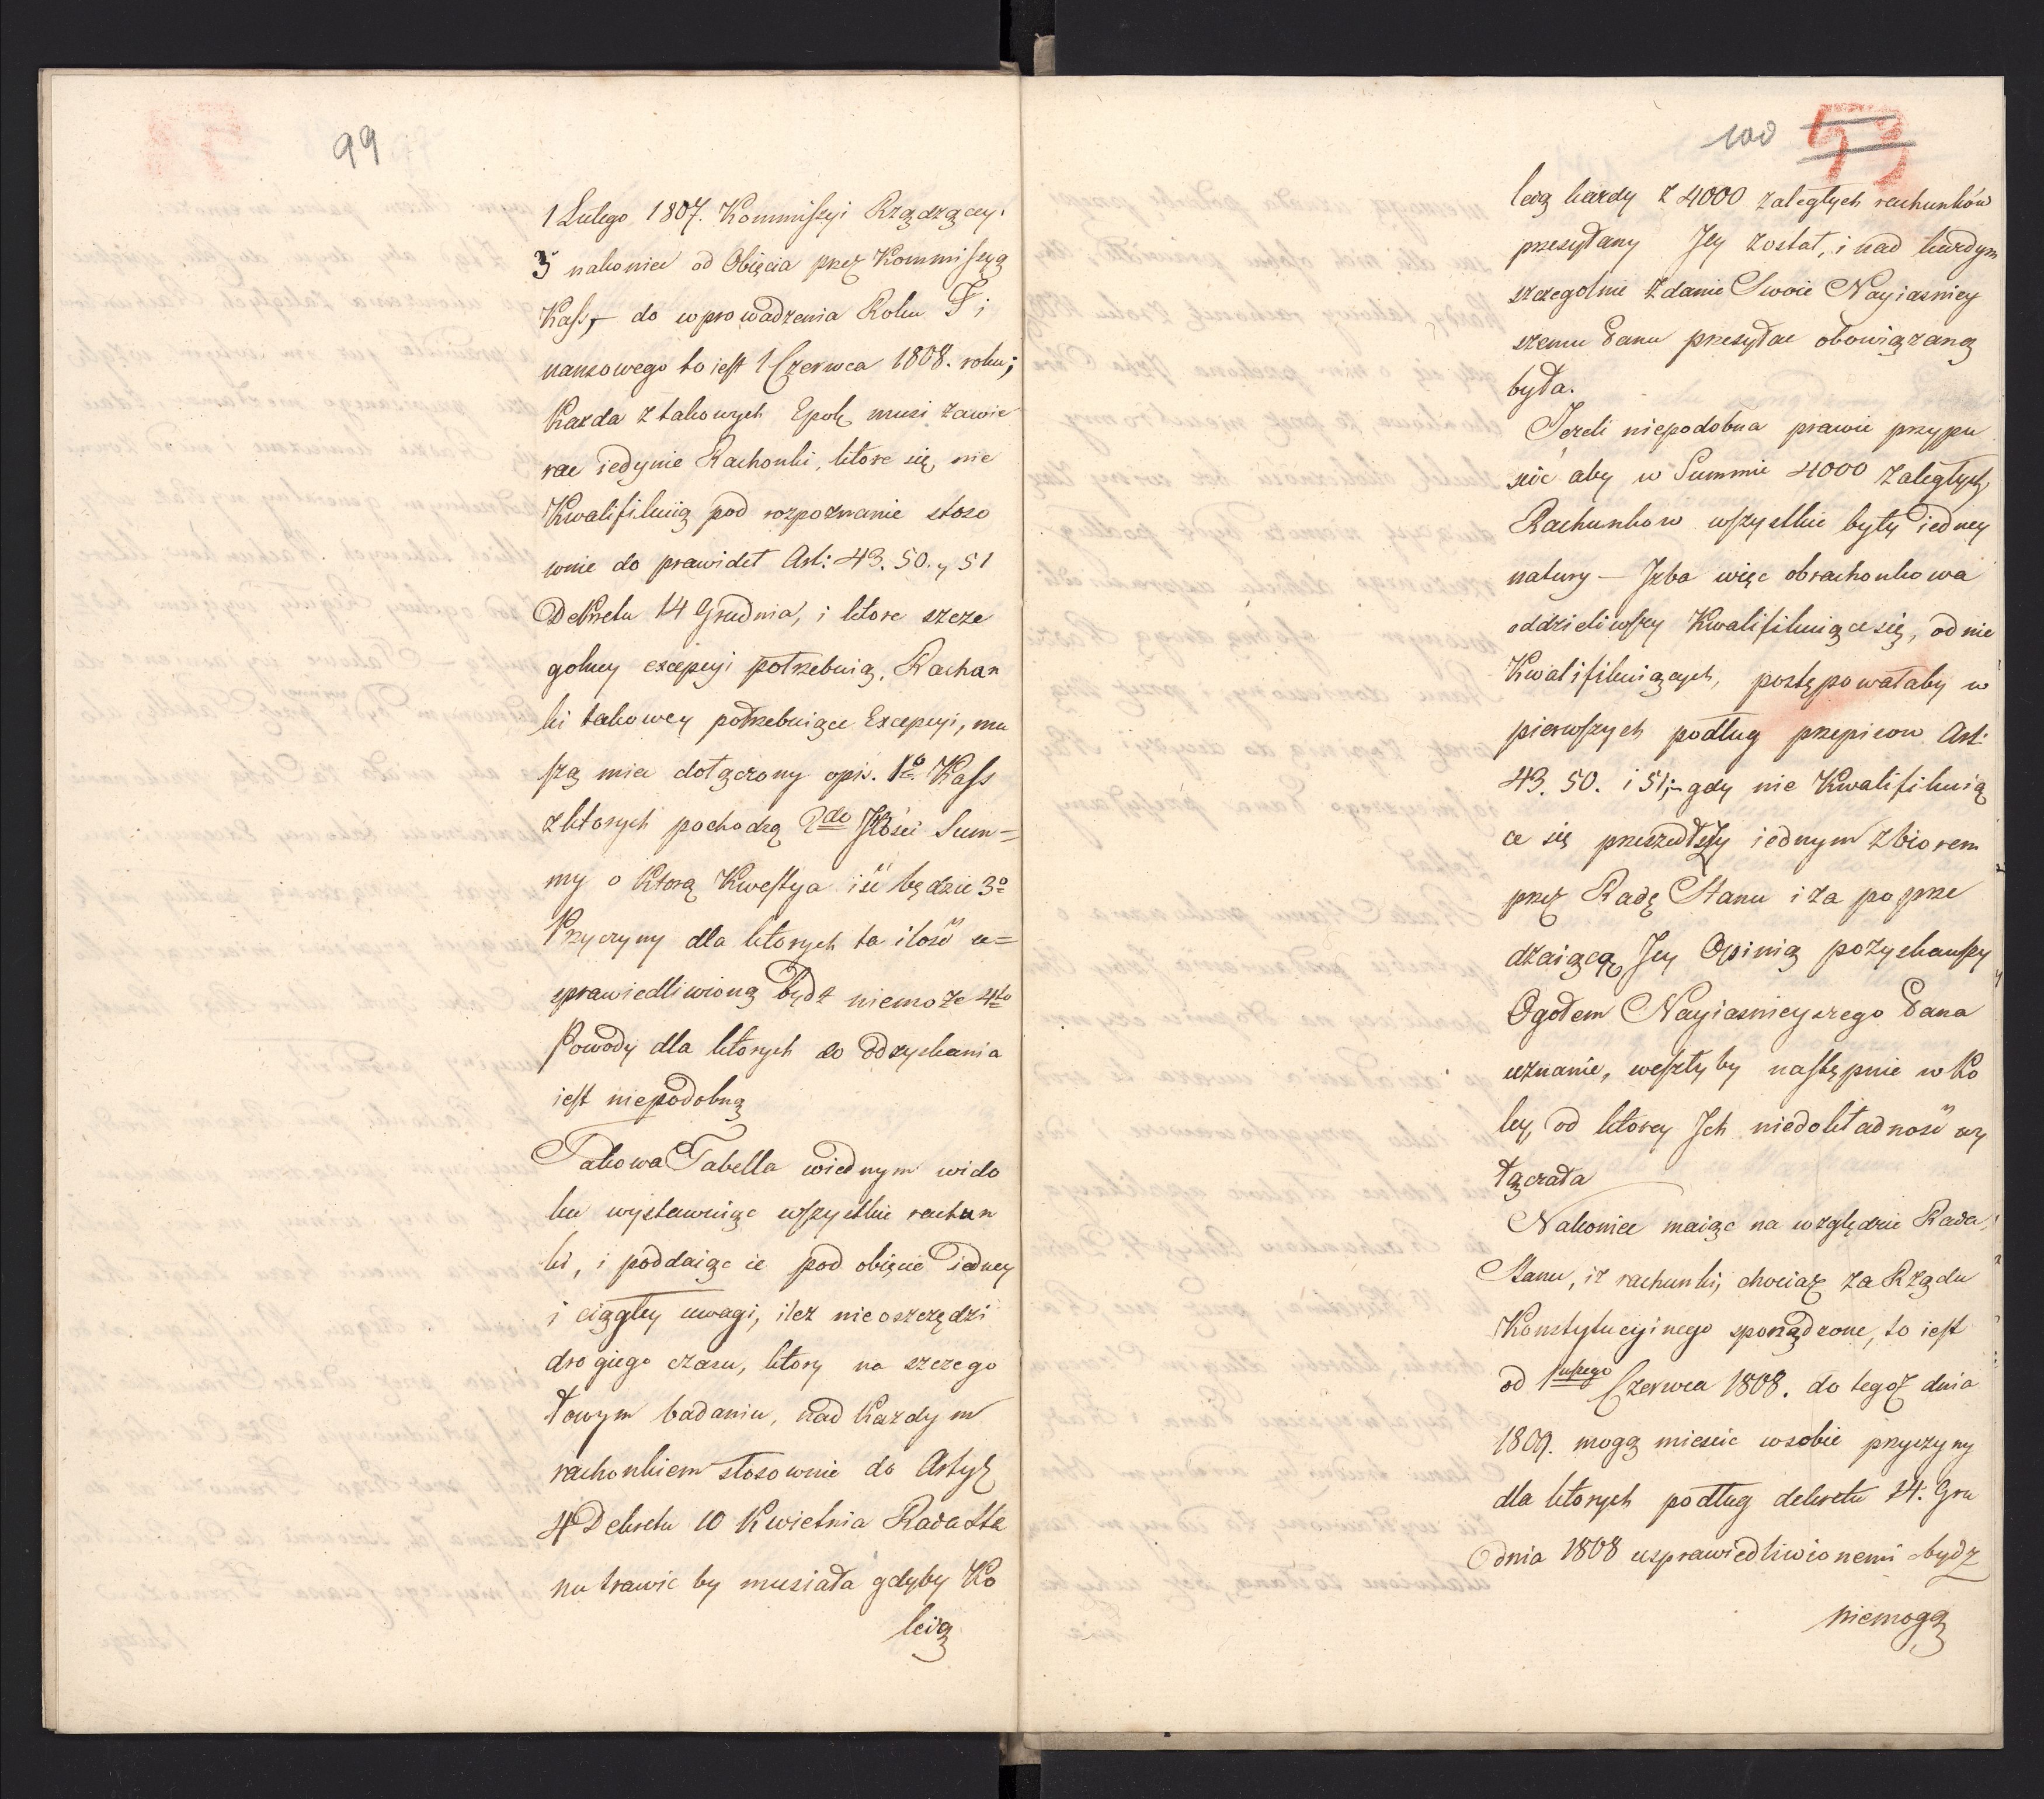 99
1 Lutego 1807. Kommissyi Rządzącey.
3 nakoniec od Obięcia przez Kommissyą
Kass, – do wprowadzenia Roku Fi
nansowego to iest 1 Czerwca 1808. roku;
Kazda z takowych Epok musi zawie
rac iedynie Rachonki, ktore się nie
Kwalifikuią pod rozpoznanie stoso
wnie do prawideł Art: 43. 50. y 51
Dekretu 14 Grudnia, i ktore szcze
golney excepcyi potrzebuią. Rachun
ki takowey potrzebuiące Excepcyi, mu
szą miec dołączony opis. 1o Kass
z ktorych pochodzą 2do Ilości Sum=
my o Ktorą Kwestya iść będzie 3o
Przyczyny dla ktorych ta ilość u=
sprawiedliwioną bydz niemoże 4to
Powody dla ktorych do odzyskania
iest niepodobną
Takowa Tabella wiednym wido
ku wystawuiąc wszystkie rachun
ki, i poddaiąc ie pod obięcie iedney
i ciągłey uwagi, ilez nieoszczędzi
drogiego czasu, ktory na szczego
łowym badaniu, nad Kazdym
rachonkiem stosownie do Artyk
4 Dekretu 10 Kwietnia Rada Sta
nu trawic by musiała gdyby Ko
leią
100 53
leią kazdy z 4000 zaległych rachunków
przesyłany Jey został, i nad kazdym
szczegolnie zdanie Swoie Nayiasniey
szemu Panu przesyłac obowiązaną
była.
Jezeli niepodobna prawie przypu
scić aby w Summie 4000 zaległych
Rachunkow wszystkie były iedney
natury – Jzba więc obrachonkowa
oddzieliwszy Kwalifikuiące się, od nie
Kwalifikuiących, postępowałaby w
pierwszych podług przepisow Art:
43. 50. i 51;– gdy nie Kwalifikuią
ce się przeszedłszy iednym zbiorem
przez Radę Stanu i za poprze
dzaiącą Jey Opinią pozyskawszy
Ogołem Nayiasnieyszego Pana
uznanie, weszły by następnie w Ko
ley, od ktorey Jch niedokładność wy
łączała
Nakoniec maiąc na względzie Rada
Stanu, iz rachunki, chociaz za Rządu
Konstytucyinego sporządzone, to iest
od 1wszego Czerwca 1808. do tegoz dnia
1809. mogą miescic wsobie przyczyny
dla ktorych podług dekretu 14. Gru
dnia 1808 usprawiedliwionemi bydz
niemogą